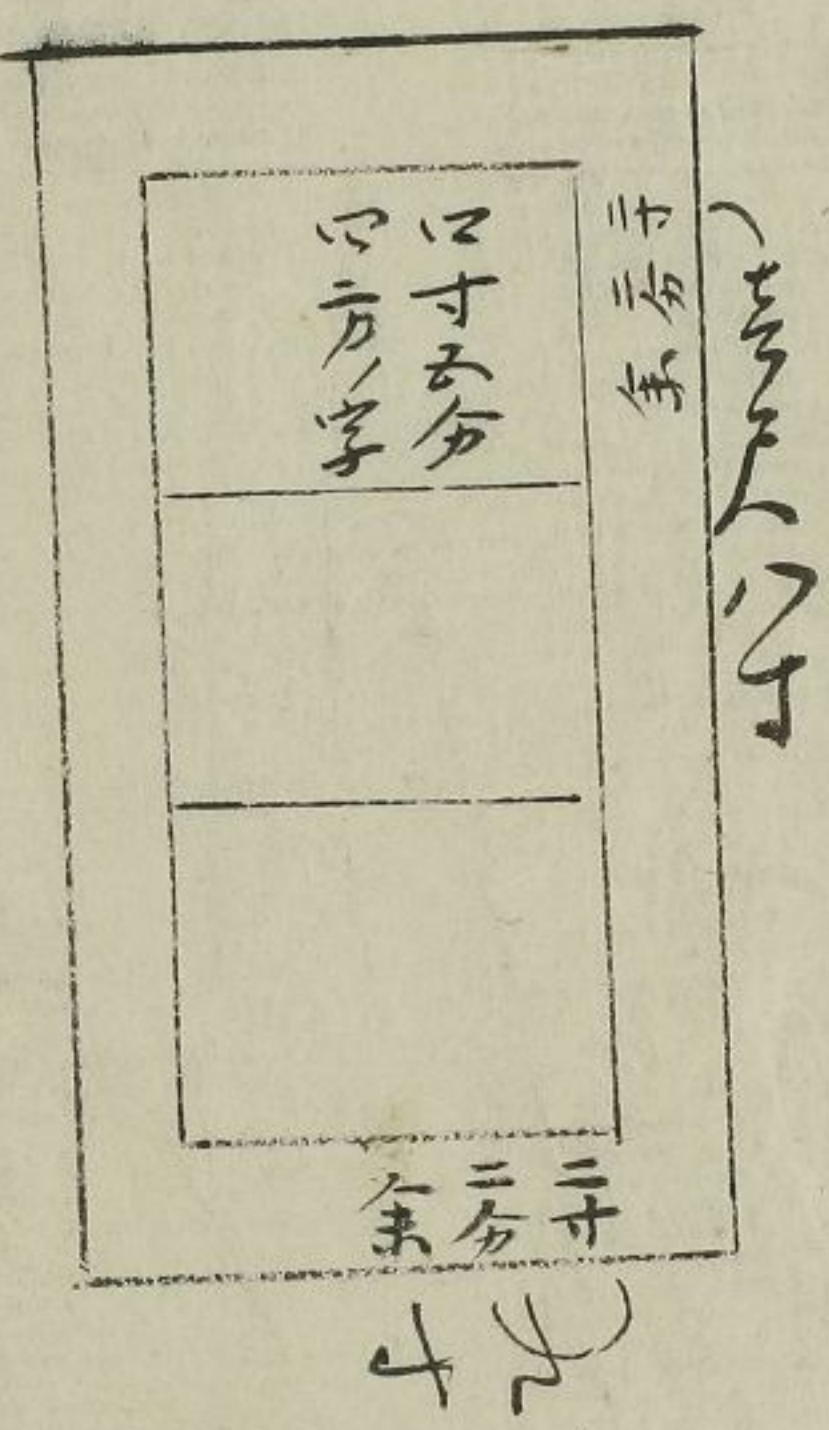 壱尺八寸
二寸二分余
四寸五分
四方ノ字
二寸
二分
余
九寸